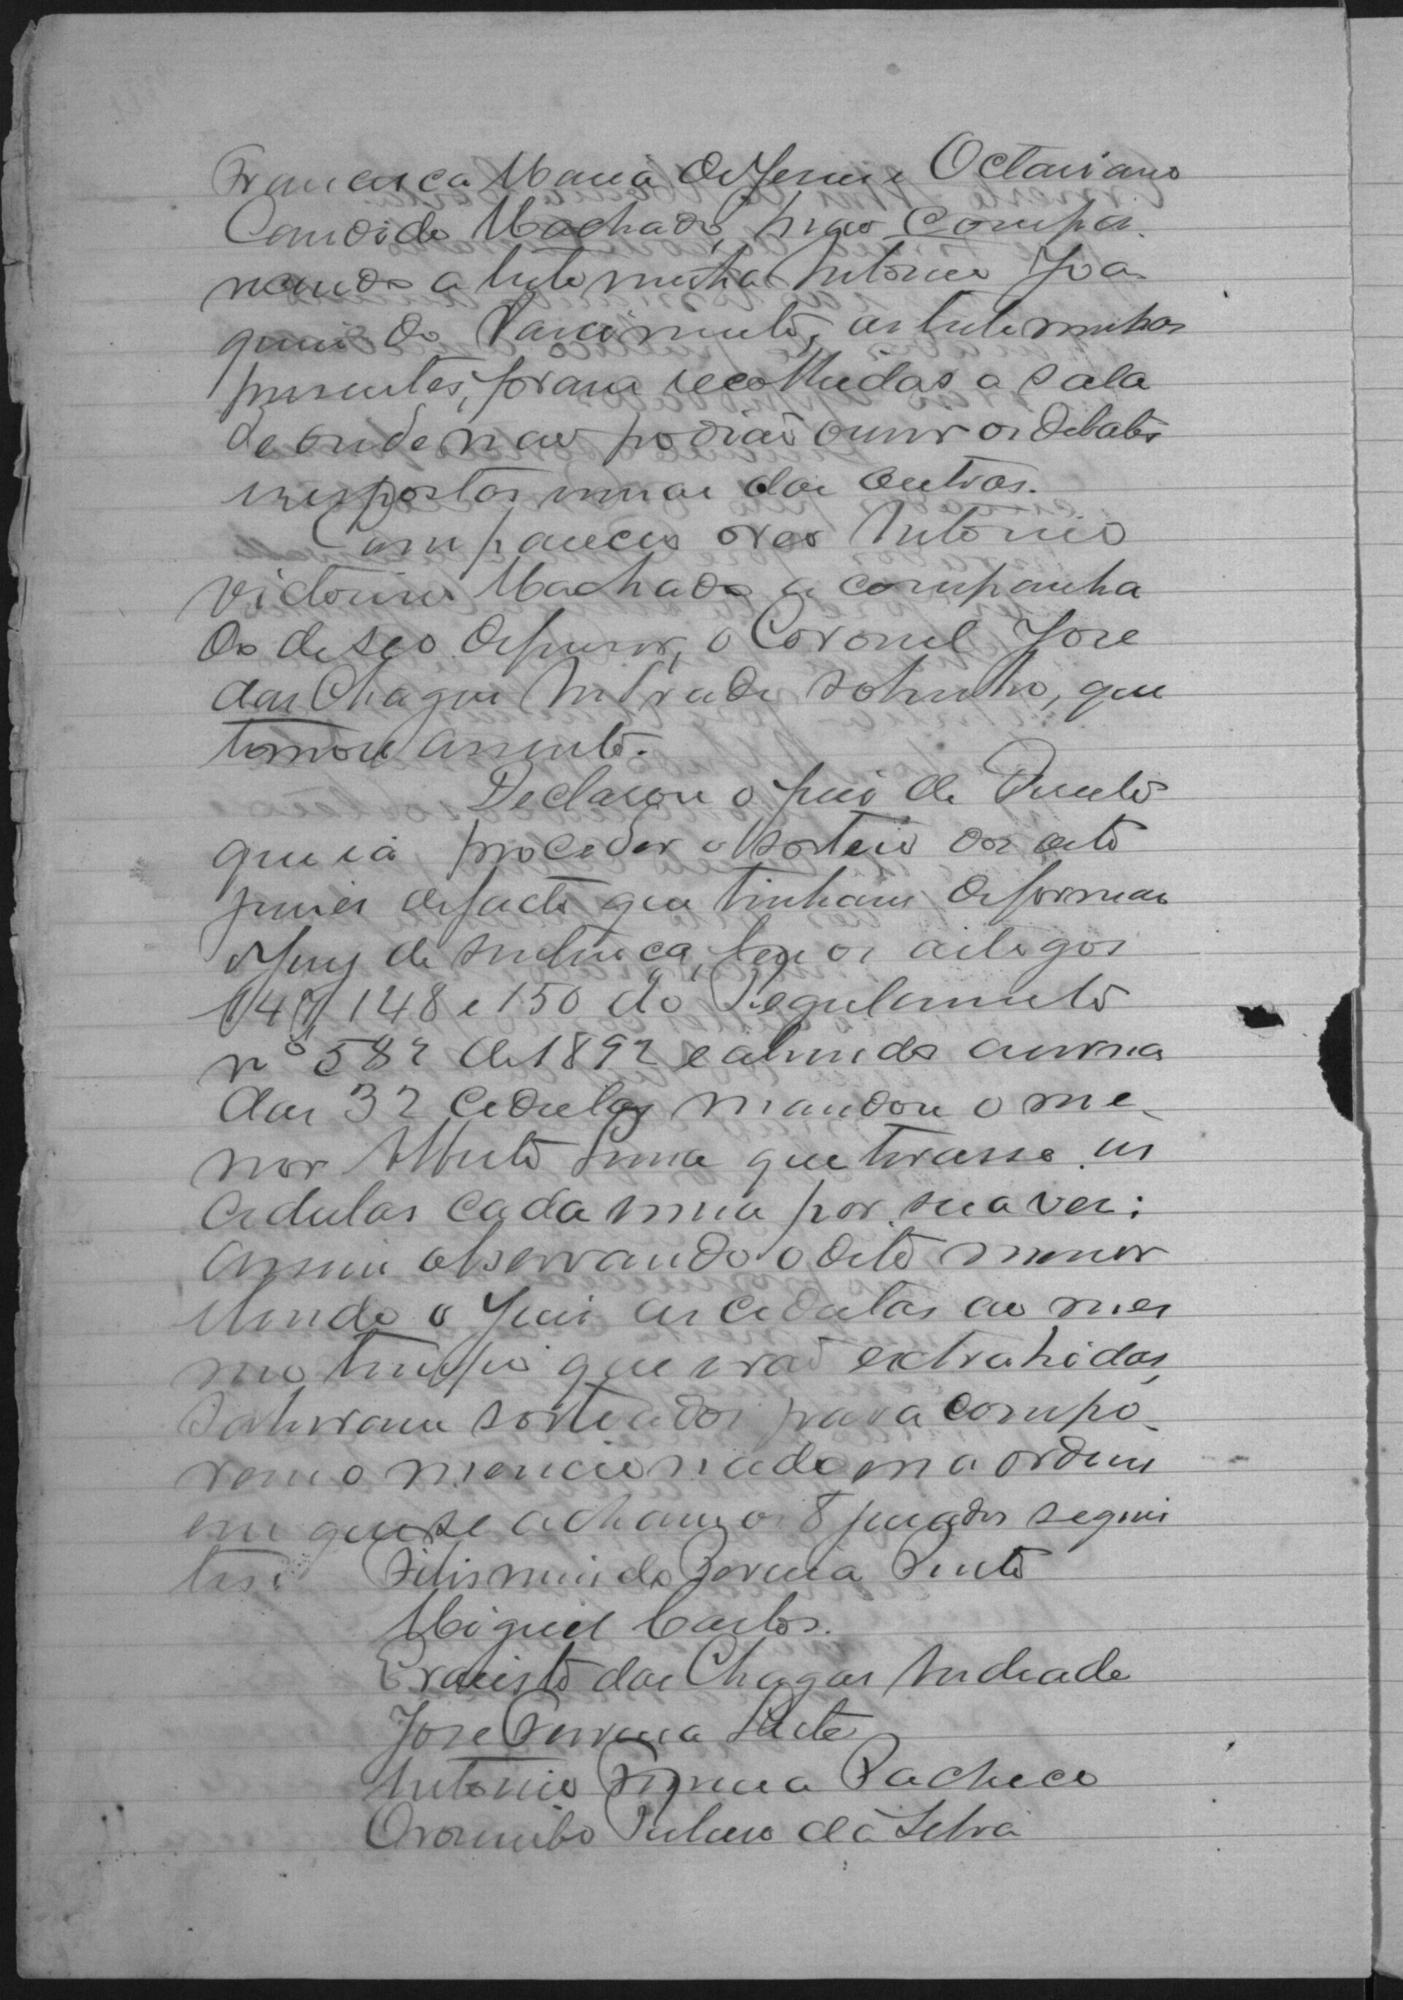 Francisca Maria de Jesus e Octaviano
Candido Machado, não compa-
recendo a testemunha Antonio Joa-
quim do Nascimento, as testemunhas
presentes, foram recolhidas a sala
de onde não podião ouvir os debates
e respostas umas das outras.
Compareceu o reo Antonio
Victorino Machado acompanha
do de seo defensor, o Coronel Jose
das Chagas Andrade Sobrinho, que
tomou assento.
Declarou o juis de Direito
que ia proceder o sorteio dos oito
juises de facto que tinham de formar
o Jury de sentença, leu os artegos
147, 148 e 150 do Regulamento
nº 582 de 1892 e abrindo a urna
das 32 cedulas mandou o me-
nor Alberto Lima que tirasse as
cedulas cada uma por sua ves;
assim observando o dito menor
lendo o Juis as cedulas ao mes
mo tempo que erão extrahidas,
sahiram sorteados para compo-
rem o mencionado na ordem
em que se acham, os 8 jurados seguin
tes: Felismindo Pereira Pinto
Miguel Carlos.
Evaristo das Chagas Andrade
Jose Ferreira Leite
Antonio Pacheco
Orosimbo da Silva